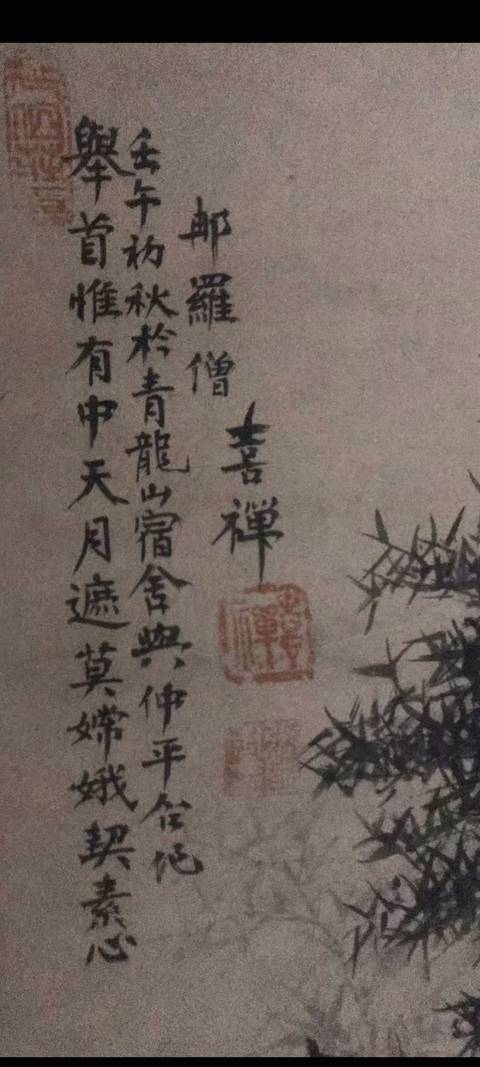 舉首惟有中天月遮莫嫦娥契素心
壬午初秋於青龍山宿舍與仲平合作
郍羅僧
喜禪
喜禪